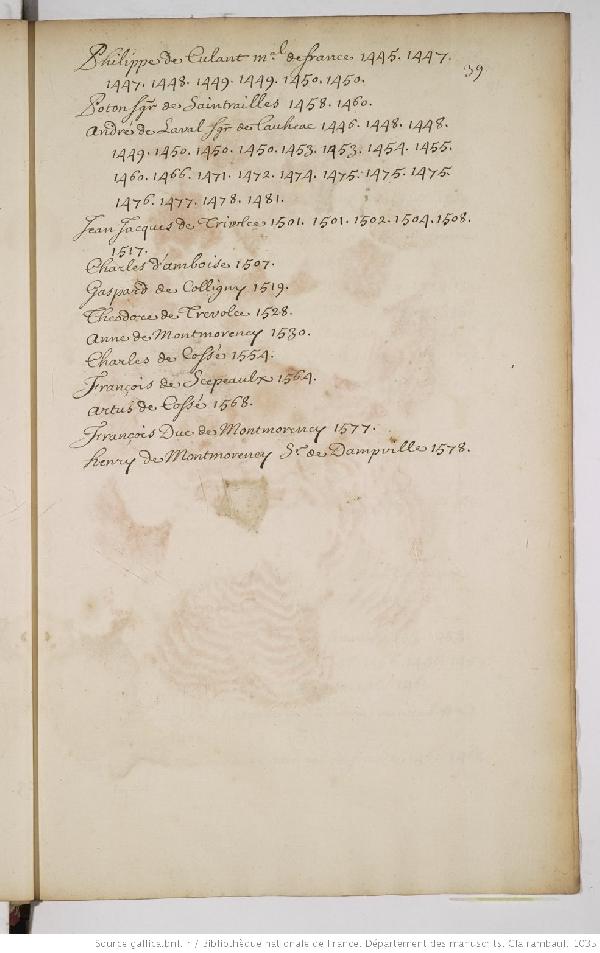 Philippe de Culant m.al de france 1445. 1447.
39
1447. 1448. 1449. 1449. 1450. 1450.
Poton sgr de Saintrailles 1458. 1460.
André de Laval sgr de Loheac 1446. 1448. 1448.
1449. 1450. 1450. 1450. 1453. 1453. 1454. 1455.
1460. 1466. 1471. 1472. 1474. 1475. 1475. 1475.
1476. 1477. 1478. 1481.
Jean Jacques de Trivolce 1501. 1501. 1502. 1504. 1508.
1517.
Charles d'amboise 1507.
Gaspard de Colligny 1519.
Theodore de Trevolce 1528.
Anne de Montmorency 1530.
Charles de Cossé 1554.
François de Scepeaulx 1564.
Artus de Cossé 1568.
François Duc de Montmorency 1577.
henry de Montmorency Sr. de Dampville 1578.
Source gallica.bnf.fr / Bibliothèque nationale de France. Département des manuscrits. Clairambault 1035